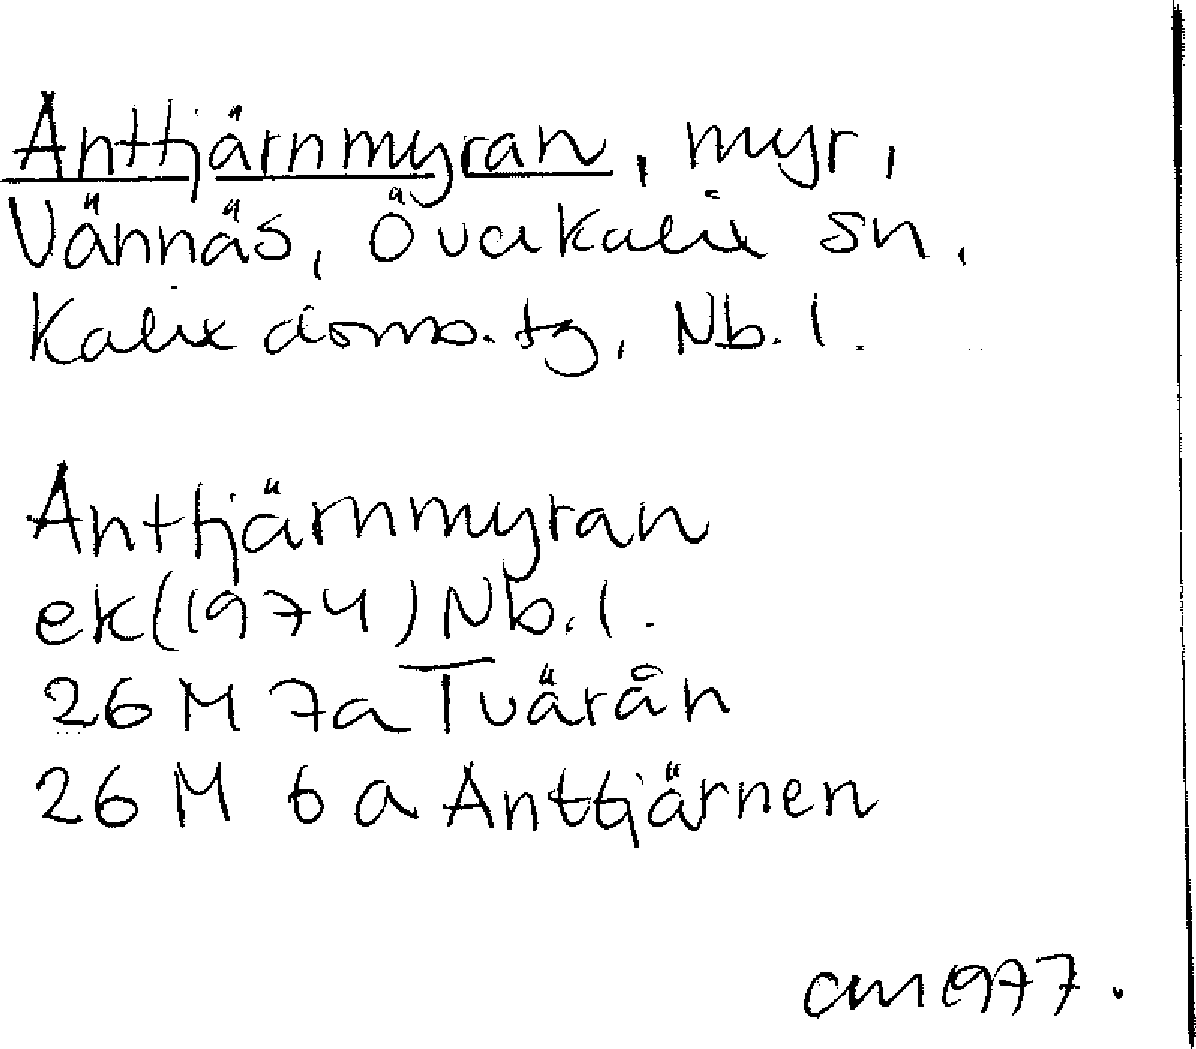 Anttjärnmyran, myr,
Vännäs, Överkalix sn.
Kalix doms. tg, Nb. l.
Anttjärnmyran
ek (1974) Nb. l.
26 M 7a Tvärån
26 M 6a Anttjärnen
cm 1977.